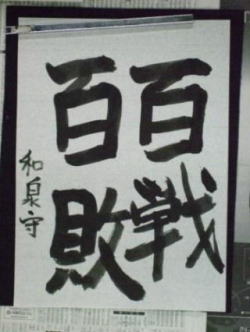 百戦
百敗
和泉守